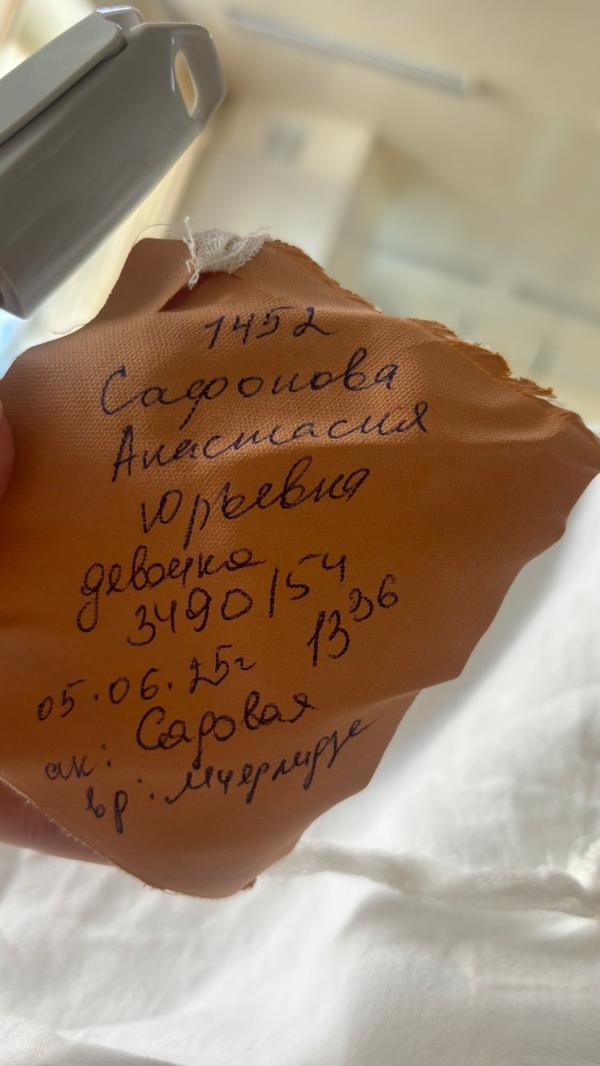 1452
Сафонова
Анастасия
Юрьевна
девочка
3490/54
05.06.25г 13 36
ак: Садовая
вр: